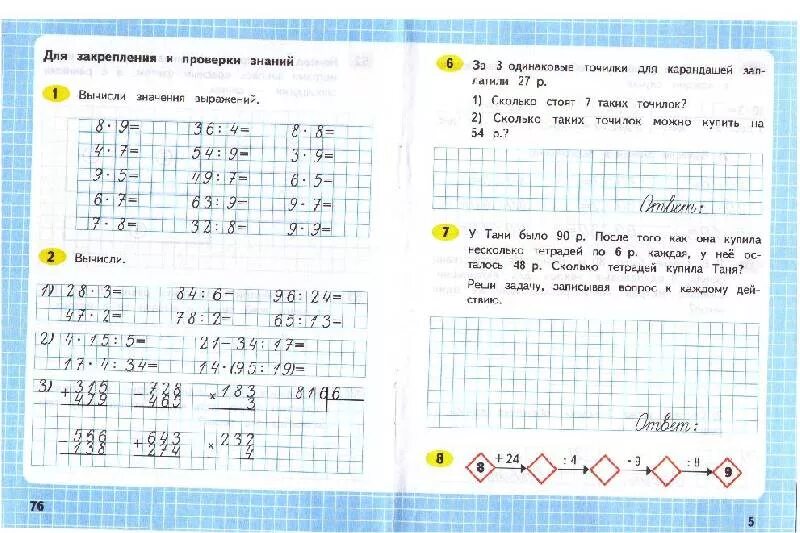 Для закрепления и проверки знаний
1 Вычисли значения выражений.
8·9= 36:4= 8·8=
4·7= 54:9= 3·9=
9·5= 49:7= 6·5=
6·7= 63:9= 9·7=
7·8= 32:8= 9·9=
2 Вычисли.
1) 28·3= 84:6= 96:24=
47·2= 78:2= 65:13=
2) 4·15:5= 21-34:17=
17·4:34= 14·(95:19)=
3) +315 -728 ×183 816 6
479 465 3
-556 +643 ×232
138 274 4
76
6 За 3 одинаковые точилки для карандашей заплатили 27 р.
1) Сколько стоят 7 таких точилок?
2) Сколько таких точилок можно купить на
54 р.?
Ответ:
7 У Тани было 90 р. После того как она купила
несколько тетрадей по 6 р. каждая, у неё ос-
талось 48 р. Сколько тетрадей купила Таня?
Реши задачу, записывая вопрос к каждому дей-
ствию.
Ответ:
8 8 +24 :4 ·9 :8 9
5